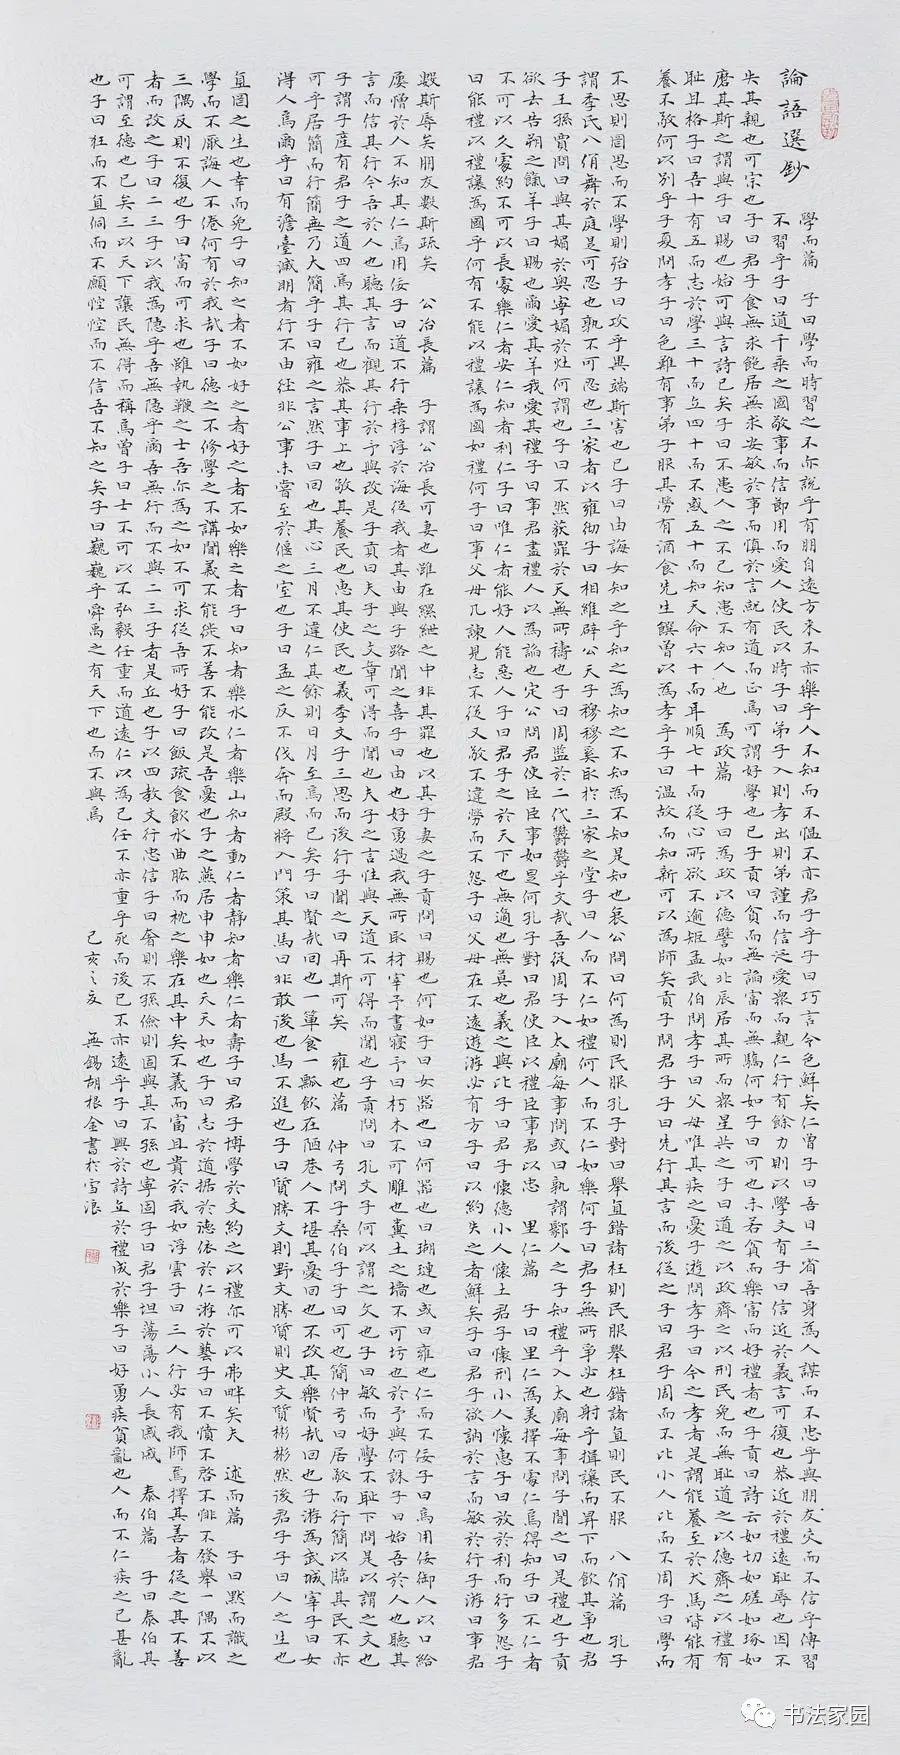 論語選鈔
學而篇 子曰學而時習之不亦說乎有朋自遠方來不亦樂乎人不知而不慍不亦君子乎子曰巧言令色鮮矣仁曾子曰吾日三省吾身為人謀而不忠乎與朋友交而不信乎傳習
不習乎子曰道千乘之國敬事而信節用而愛人使民以時子曰弟子入則孝出則弟謹而信泛愛眾而親仁行有餘力則以學文有子曰信近於義言可復也恭近於禮遠恥辱也因不
失其親也可宗也子曰君子食無求飽居無求安敏於事而慎於言就有道而正焉可謂好學也已子貢曰貧而無諂富而無驕何如子曰可也未若貧而樂富而好禮者也子貢曰詩云如切如磋如琢如
磨其斯之謂與子曰賜也始可與言詩已矣子曰不患人之不己知患不知人也 為政篇 子曰為政以德譬如北辰居其所而眾星共之子曰道之以政齊之以刑民免而無恥道之以德齊之以禮有
恥且格子曰吾十有五而志於學三十而立四十而不惑五十而知天命六十而耳順七十而從心所欲不逾矩孟武伯問孝子曰父母唯其疾之憂子遊問孝子曰今之孝者是謂能養至於犬馬皆能有
養不敬何以別乎子夏問孝子曰色難有事弟子服其勞有酒食先生饌曾以為孝乎子曰溫故而知新可以為師矣貢子問君子子曰先行其言而後從之子曰君子周而不比小人比而不周子曰學而
不思則罔思而不學則殆子曰攻乎異端斯害也已子曰由誨女知之乎知之為知之不知為不知是知也哀公問曰何為則民服孔子對曰舉直錯諸枉則民服舉枉錯諸直則民不服 八佾篇 孔子
謂季氏八佾舞於庭是可忍也孰不可忍也三家者以雍徹子曰相維辟公天子穆穆奚取於三家之堂子曰人而不仁如禮何人而不仁如樂何子曰君子無所爭必也射乎揖讓而昇下而飲其爭也君
子王孫賈問曰與其媚於奧寧媚於灶何謂也子曰不然获罪於天無所禱也子曰周監於二代鬱鬱乎文哉吾從周子入太廟每事問或曰孰謂鄹人之子知禮乎入太廟每事問子聞之曰是禮也子貢
欲去告朔之餼羊子曰賜也爾愛其羊我愛其禮子曰事君盡禮人以為諂也定公問君使臣臣事如君何孔子對曰君使臣以禮臣事君以忠 里仁篇 子曰里仁為美擇不處仁焉得知子曰不仁者
不可以久處約不可以長處樂仁者安仁知者利仁子曰唯仁者能好人能惡人子曰君子之於天下也無適也無莫也義之與比子曰君子懷德小人懷土君子懷刑小人懷惠子曰放於利而行多怨子
曰能禮以禮讓為國乎何有不能以禮讓為國如禮何子曰事父母几諫見志不從又敬不違勞而不怨子曰父母在不遠遊游必有方子曰以約失之者鮮矣子曰君子欲訥於言而敏於行子游曰事君
數斯辱矣朋友數斯疏矣 公冶長篇 子謂公冶長可妻也雖在縲紲之中非其罪也以其子妻之子貢問曰賜也何如子曰女器也曰何器也曰瑚璉也或曰雍也仁而不佞子曰焉用佞御人以口給
屢憎於人不知其仁焉用佞子曰道不行乘桴浮於海從我者其由與子路聞之喜子曰由也好勇過我無所取材宰予晝寢子曰朽木不可雕也糞土之墻不可圬也於予與何誅子曰始吾於人也聽其
言而信其行今吾於人也聽其言而觀其行於予與改是子貢曰夫子之文章可得而聞也夫子之言性與天道不可得而聞也子貢問曰孔文子何以謂之文也子曰敏而好學不恥下問是以謂之文也
子謂子產有君子之道四焉其行己也恭其事上也敬其養民也惠其使民也義季文子三思而後行子聞之曰再斯可矣 雍也篇 仲弓問子桑伯子子曰可也簡仲弓曰居敬而行簡以臨其民不亦
可乎居簡而行簡無乃大簡乎子曰雍之言然子曰回也其心三月不違仁其餘則日月至焉而已矣子曰賢哉回也一簞食一瓢飲在陋巷人不堪其憂回也不改其樂賢哉回也子游為武城宰子曰女
得人焉爾乎曰有澹臺滅明者行不由徑非公事未嘗至於偃之室也子曰孟之反不伐奔而殿將入門策其馬曰非敢後也馬不進也子曰質勝文則野文勝質則史文質彬彬然後君子子曰人之生也
直罔之生也幸而免子曰知之者不如好之者好之者不如樂之者子曰知者樂水仁者樂山知者動仁者靜知者樂仁者壽子曰君子博學於文約之以禮亦可以弗畔矣夫 述而篇 子曰默而識之
學而不厭誨人不倦何有於我哉子曰德之不修學之不講聞義不能徙不善不能改是吾憂也子之燕居申申如也夭夭如也子曰志於道据於德依於仁游於藝子曰不憤不啓不悱不發舉一隅不以
三隅反則不復也子曰富而可求也雖執鞭之士吾亦為之如不可求從吾所好子曰飯疏食飲水曲肱而枕之樂在其中矣不義而富且貴於我如浮雲子曰三人行必有我師焉擇其善者從之其不善
者而改之子曰二三子以我為隱乎吾無隱乎爾吾無行而不與二三子者是丘也子以四教文行忠信子曰奢則不孫儉則固與其不孫也寧固子曰君子坦蕩蕩小人長戚戚 泰伯篇 子曰泰伯其
可謂至德也已矣三以天下讓民無得而稱焉曾子曰士不可以不弘毅任重而道遠仁以為己任不亦重乎死而後已不亦遠乎子曰興於詩立於禮成於樂子曰好勇疾貧亂也人而不仁疾之已甚亂
也子曰狂而不直侗而不願悾悾而不信吾不知之矣子曰巍巍乎舜禹之有天下也而不與焉 己亥之夏 無錫胡根金書於雪浪
书法家园